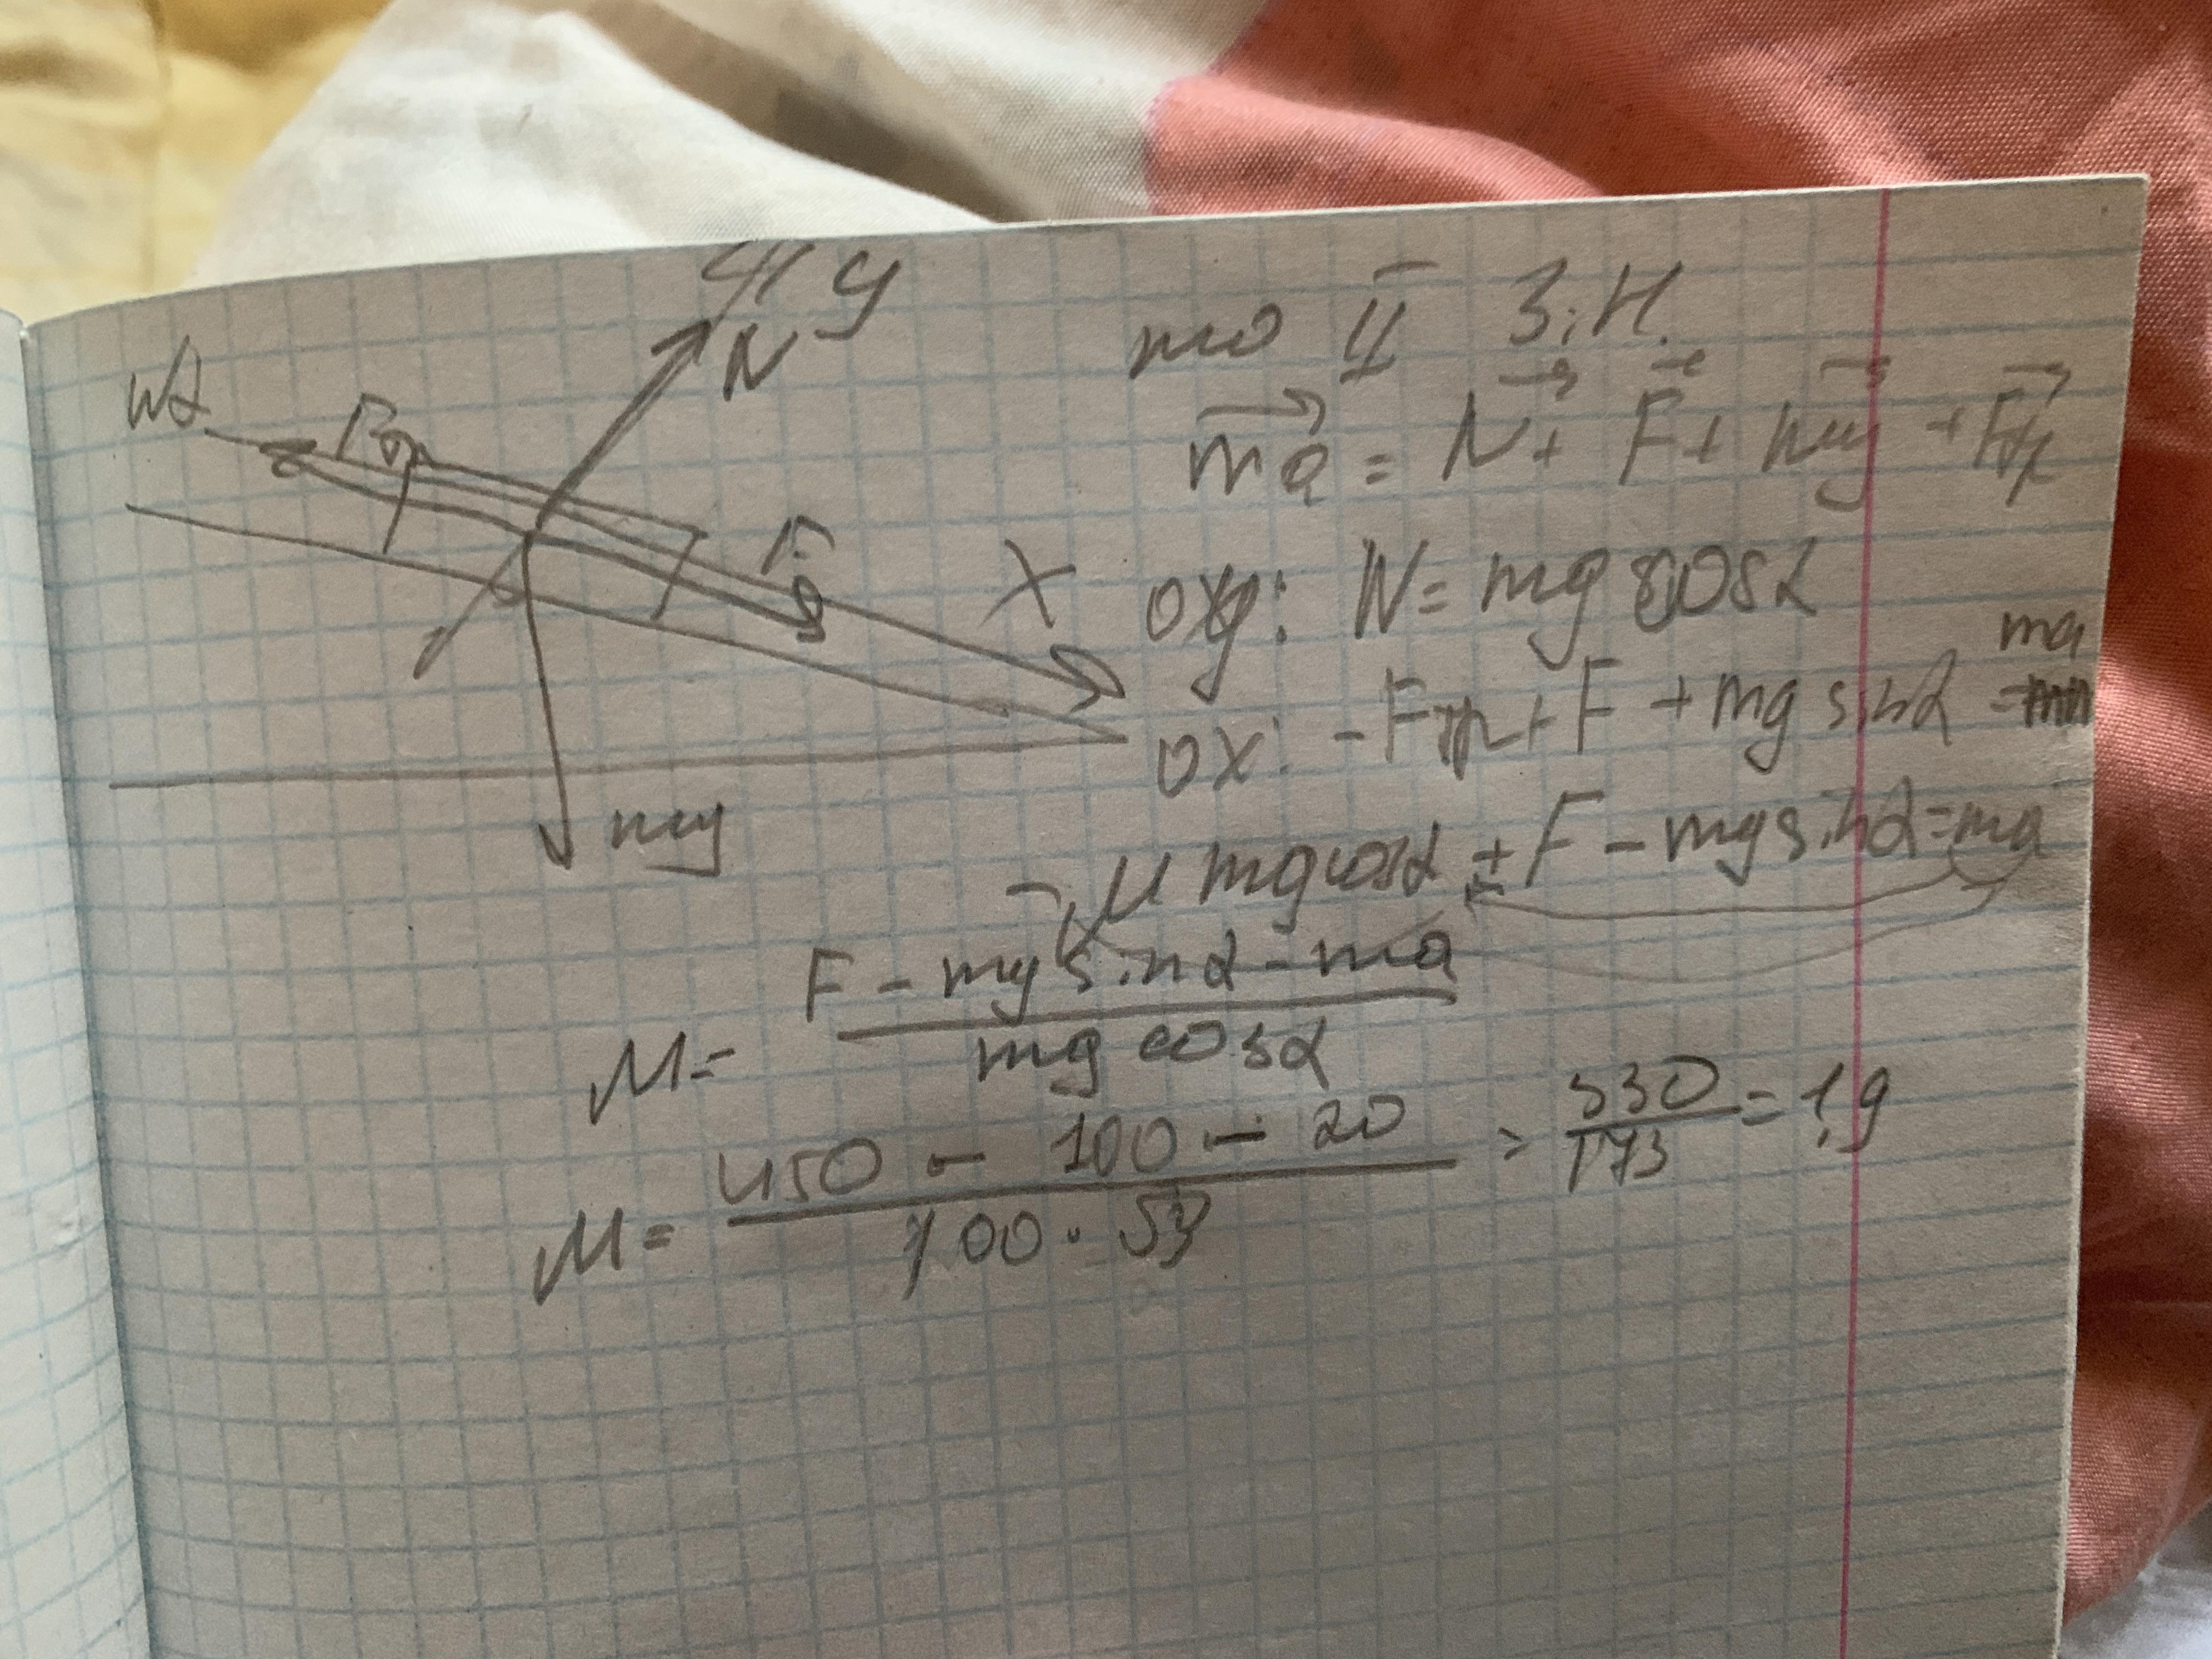 y
N
№2
Fтр
F
X
mg
по II З.Н.
ma = N + F + mg + Fтр
oy: N = mg cosα
ox: -Fтр + F + mg sinα = ma
- μ mg cosα + F - mg sinα = ma
μ = F - mg sinα - ma / mg cosα
μ = 450 - 100 - 20 / 100 · √3 = 330 / 173 = 1,9